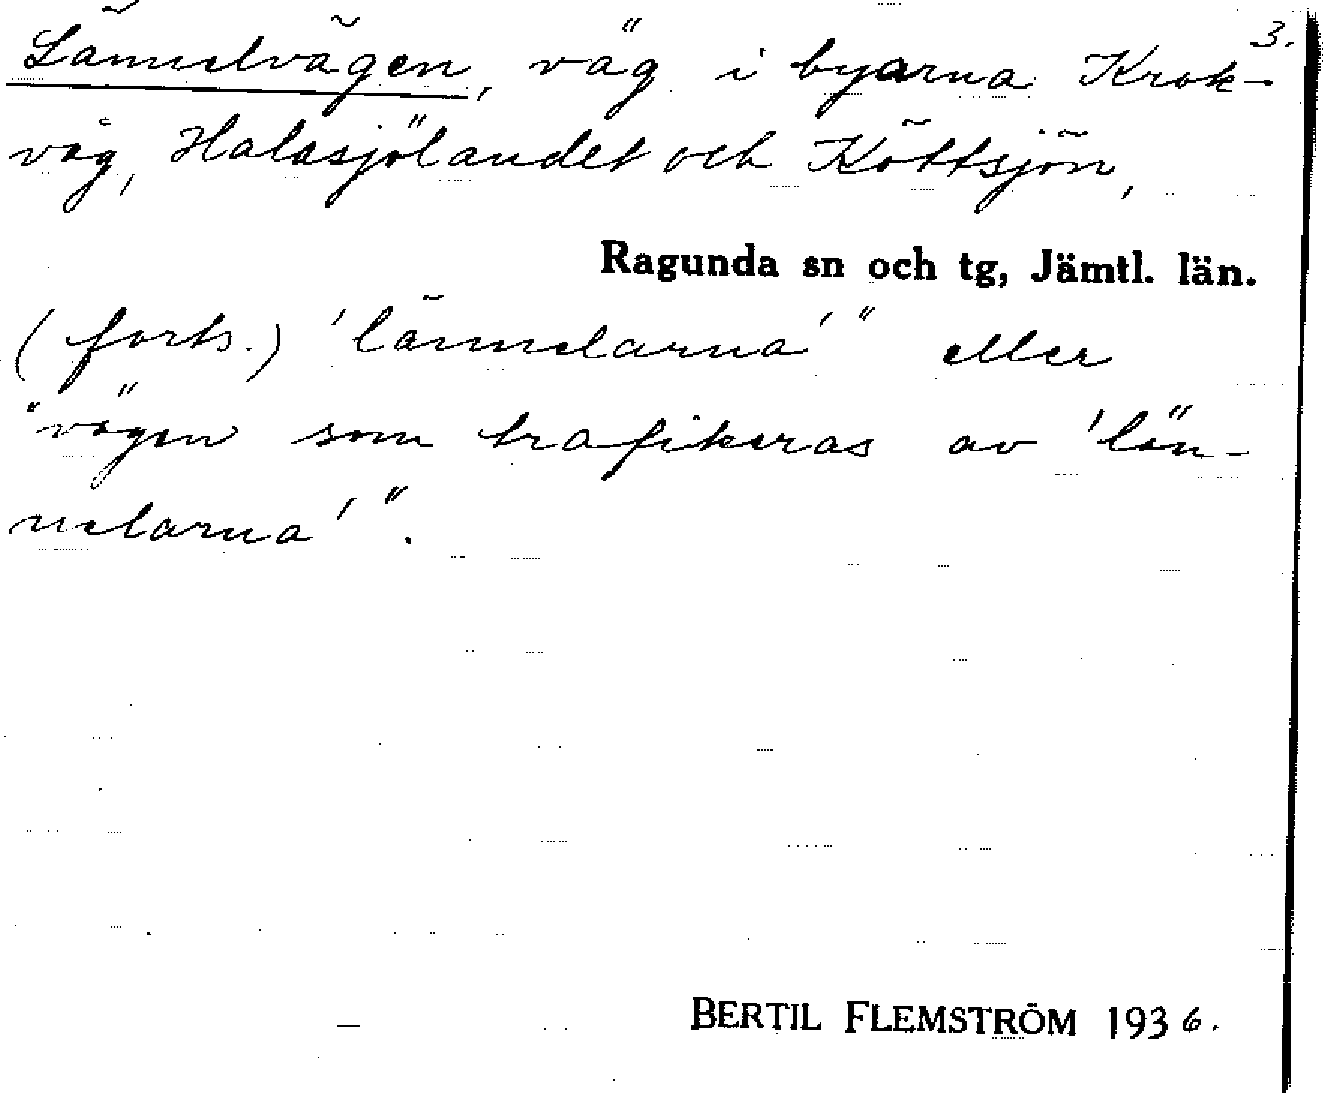 3.
Lännelvägen, väg i byarna Krok-
våg, Halasjölandet och Köttsjön,
Ragunda sn och tg, Jämtl. län.
(forts.) 'lännelarna'" eller
"vägen som trafikeras av 'län-
nelarna'".
BERTIL FLEMSTRÖM 1936.